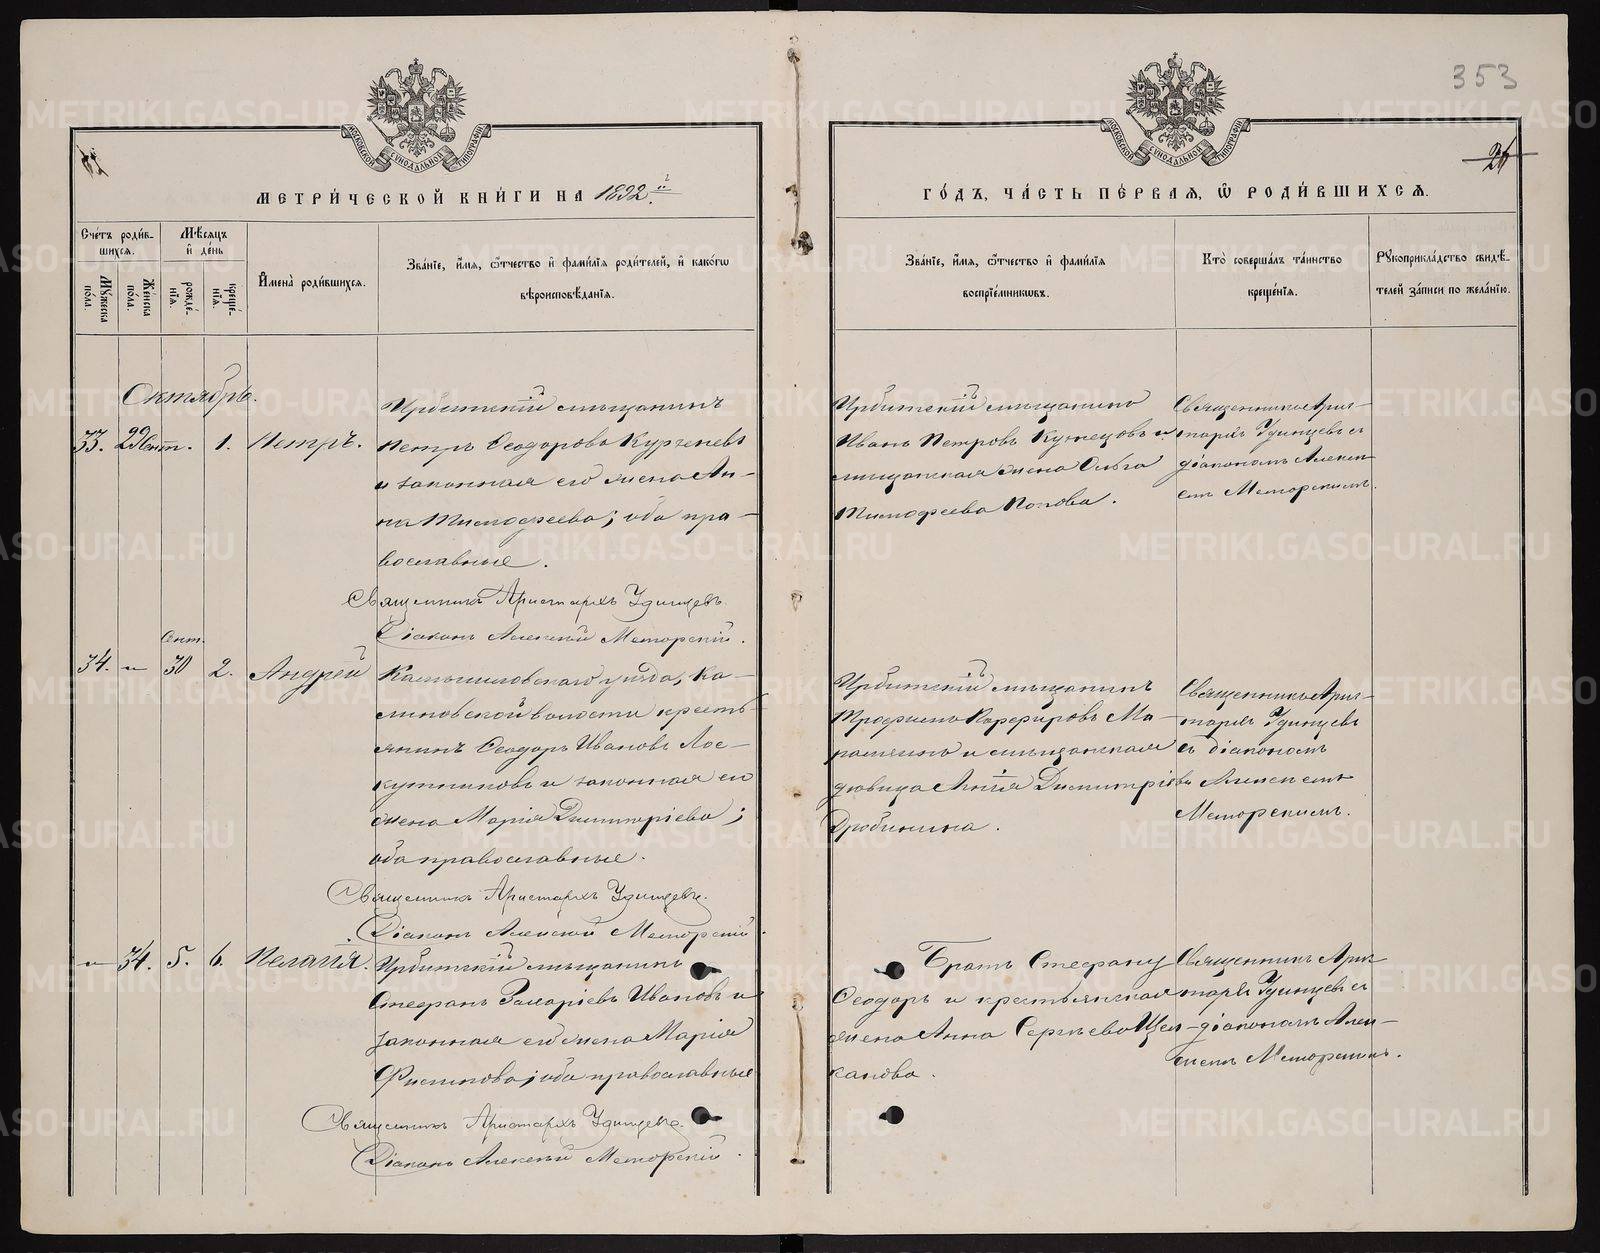 353
26
МОСКОВСКОЙ СѴНОДАЛЬНОЙ ТИПОГРАФІИ
МОСКОВСКОЙ СѴНОДАЛЬНОЙ ТИПОГРАФІИ
МЕТРИ́ЧЕСКОЙ КНИ́ГИ НА 1892й
ГО́ДЪ, ЧА́СТЬ ПЕ́РВАЯ, Ѿ РОДИ́ВШИХСѦ.
Сче́тъ роди́в-
шихсѧ.
Мꙋжеска по́ла.
Же́нска по́ла.
Мѣ́сѧцъ
и҆ де́нь
рожде́-
нїѧ.
креще́-
нїѧ.
И҆мена̀ роди́вшихсѧ.
Зва́нїе, и҆́мѧ, ѻ҆́тчество и҆ фами́лїѧ роди́телей, и҆ како́гѡ
вѣроисповѣ́данїѧ.
Зва́нїе, и҆́мѧ, ѻ҆́тчество и҆ фами́лїѧ
воспрїе́мникѡвъ.
Кто̀ соверша́лъ та́инство
креще́нїѧ.
Рꙋкоприкла́дство свидѣ́-
телей за́писи по жела́нїю.
Октябрь.
33. 29 Сент. 1. Петръ.
Ирбитскій мѣщанинъ
Петръ Ѳеодоровъ
и законная его жена Ан-
на Тимоѳеева; оба пра-
вославные.
Священникъ Аристархъ Удинцевъ.
Діаконъ Алексій Меморскій.
Ирбитскій мѣщанинъ
Иванъ Петровъ Кузнецовъ и
мѣщанская жена Ольга
Тимофеева Попова.
Священникъ Арис-
тархъ Удинцевъ съ
діакономъ Алексі-
емъ Меморскимъ.
34. „ Сент. 30 2. Андрей
Камышловскаго уѣзда, Ка-
линовской волости кресть-
янинъ Ѳеодоръ Ивановъ Лос-
кутниковъ и законная его
жена Марія Димитріева;
оба православные.
Священникъ Аристархъ Удинцевъ.
Діаконъ Алексій Меморскій.
Ирбитскій мѣщанинъ
Трофимъ Парфировъ
и мѣщанская
дѣвица Димитріева
Дробинина.
Священникъ Арис-
тархъ Удинцевъ
съ діакономъ
Алексіемъ
Меморскимъ.
„ 34. 5. 6. Пелагія.
Ирбитскій мѣщанинъ
Стефанъ Ивановъ и
законная его жена Марія
Филипова; оба православные
Священникъ Аристархъ Удинцевъ.
Діаконъ Алексій Меморскій.
Братъ Стефану
Ѳеодоръ и крестьянская
жена Анна Сергѣева Щел-
канова.
Священникъ Арис-
тархъ Удинцевъ съ
діакономъ Алек-
сіемъ Меморскимъ.
METRIKI.GASO-URAL.RU